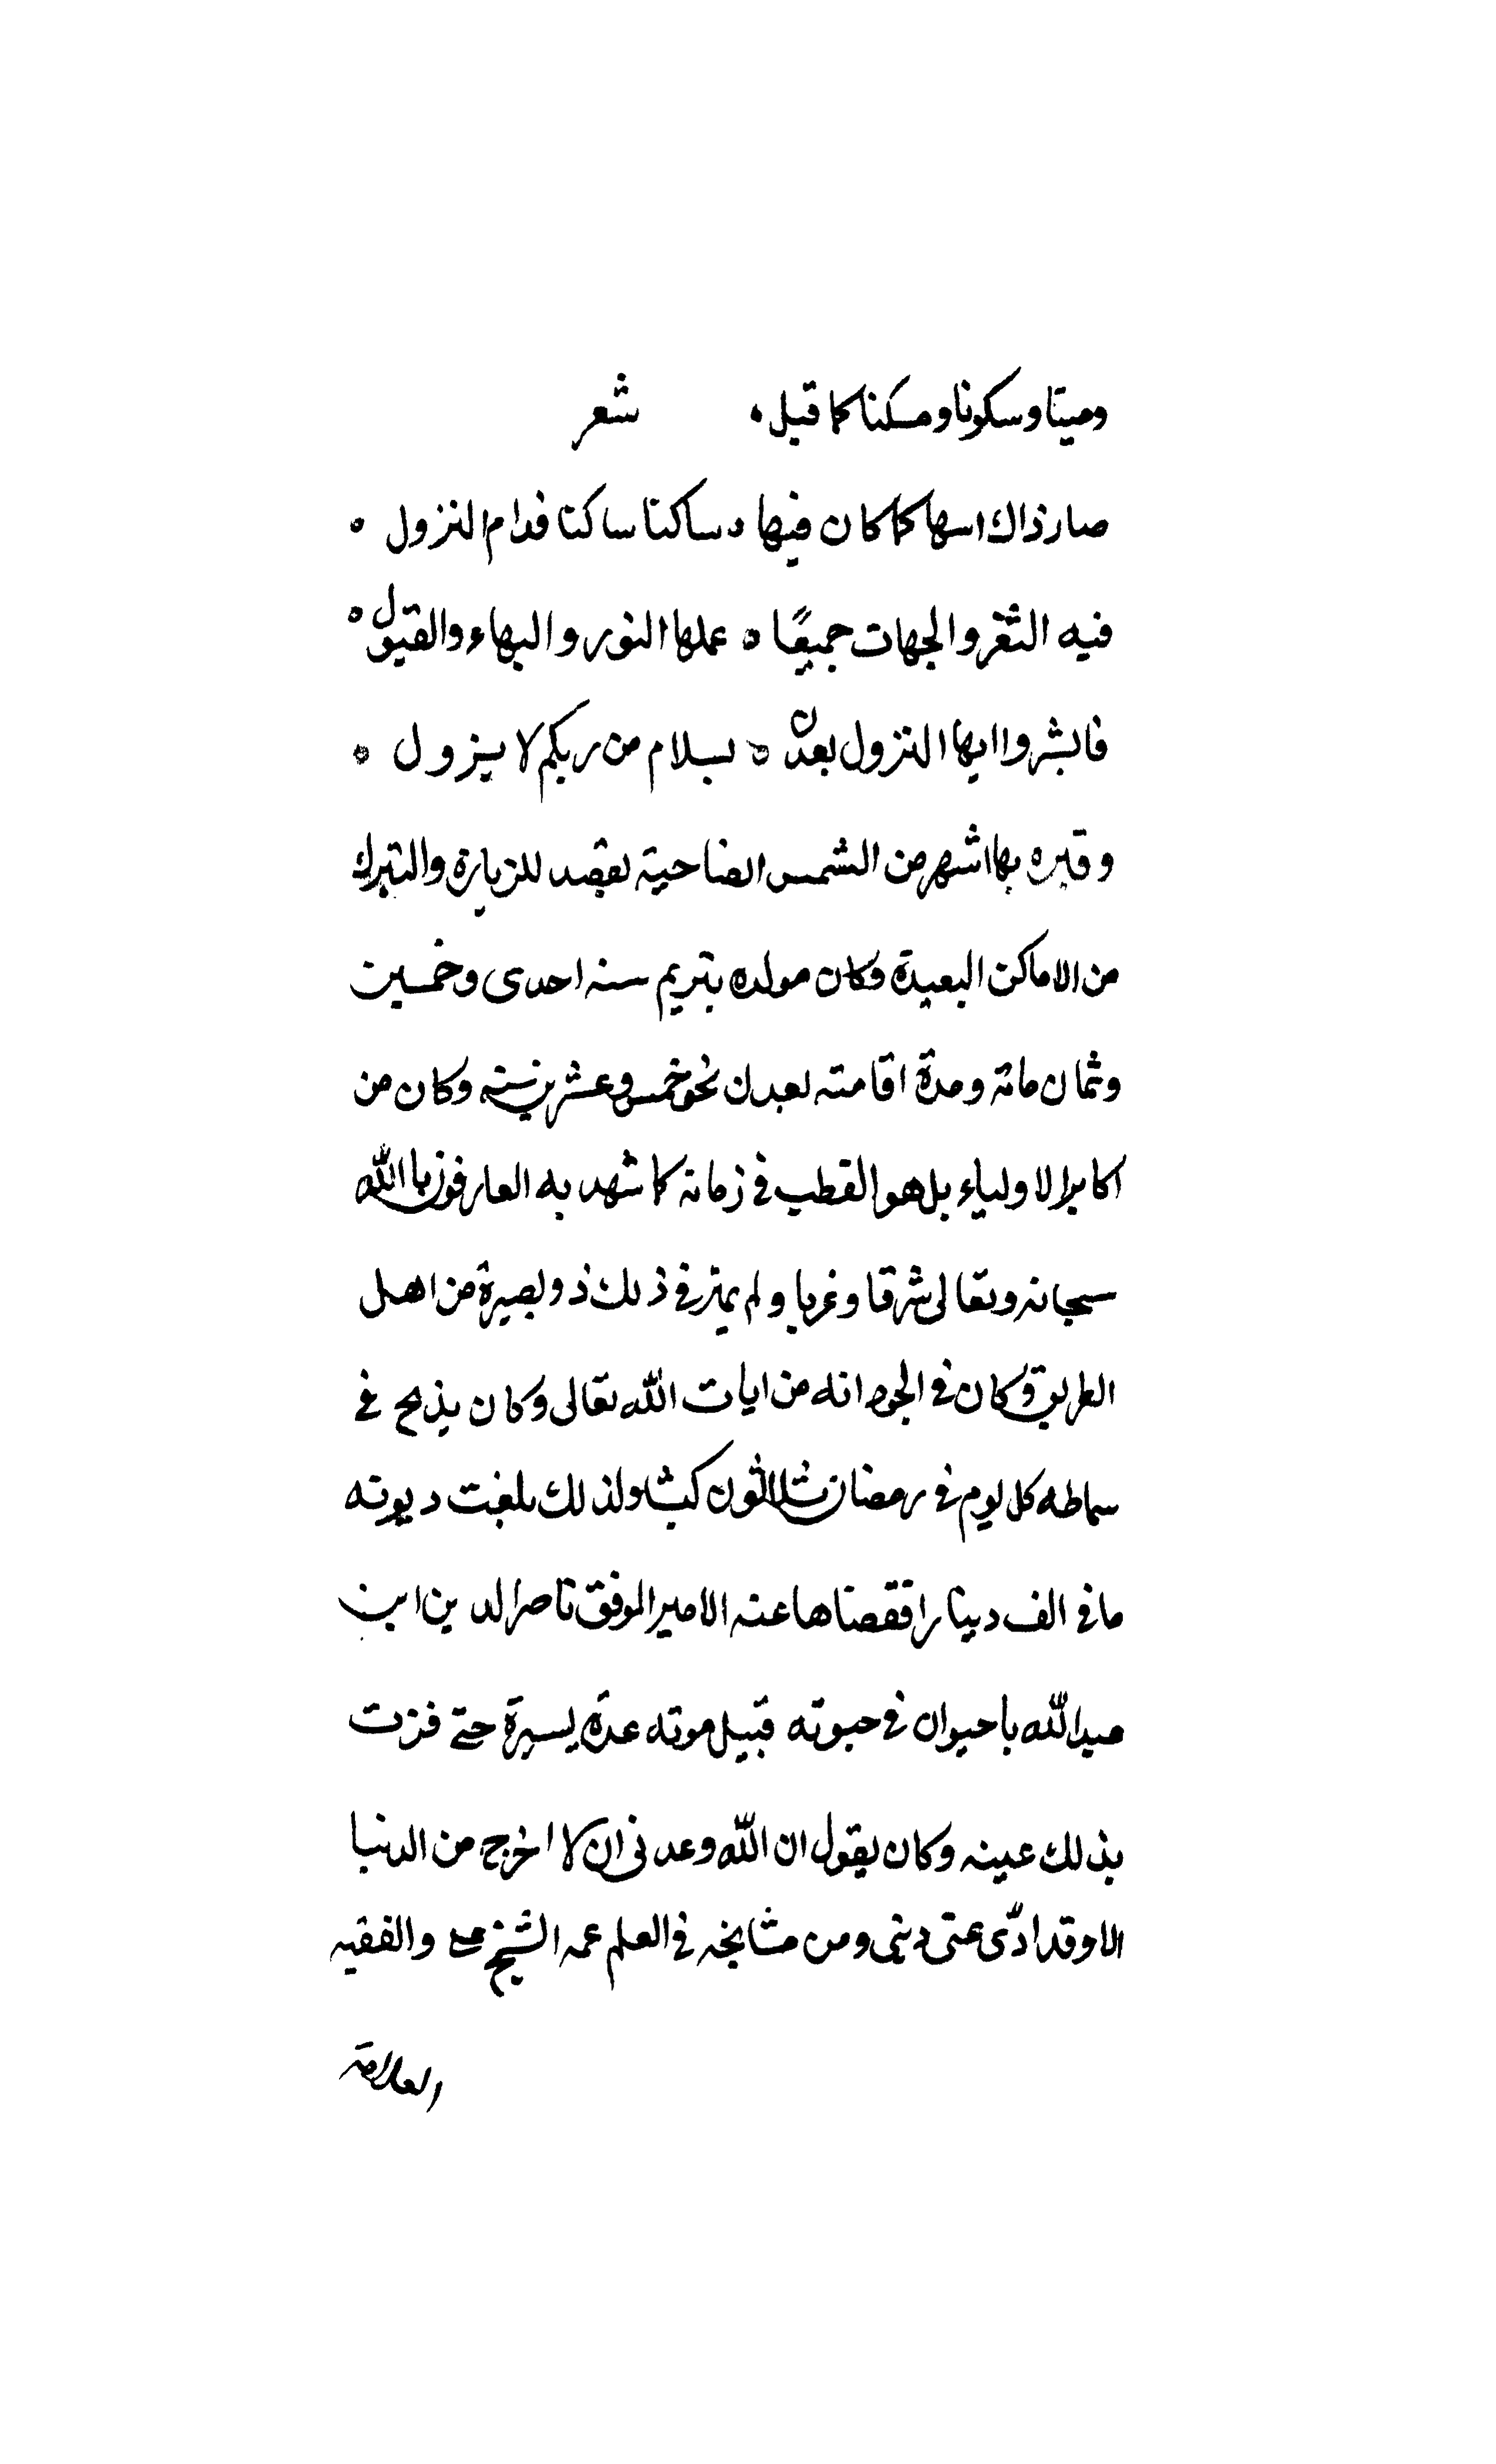 وميتا وسكونا ومسكنا كما قيل ، شعر
صار ذاك اسها كما كان فيها ه ساكنا ساكنا فدام النزول ه
فيه الثغر والجهات جميعًا ه عمها النور والبهاء والقبول ه
فابشروا ايها النزول بعدن ه بسلام من ربكم لا يزول ه
وقبره بها اشهر من الشمس الضاحية يقصد للزيارة والتبرك
من الاماكن البعيدة وكان مولده بتريم سنه احدى وخمسين
وثمان مائة ومدة اقامته بعدن نحو خمس وعشرين سنه وكان من
اكابر الاولياء بل هو القطب في زمانه كما شهد به العارفون باالله
سبحانه وتعالى شرقا وغربا ولم يمتر في ذلك ذو بصيرة من اهل
الطريق وكان في الجود انه من ايات الله تعالى وكان يذبح في
سماطه كل يوم في رمضان ثلاثون كبشا ولذلك بلغت ديونه
ماتى الف دينارا فقضاها عنه الامير الموفق ناصر الدين ابن
عبد الله باحيوان في حيوته قبيل موته عدة يسيرة حتى قرت
بذلك عينه وكان يقول ان الله وعدنى ان لا اخرج من الدنيا
الا وقد ادّى عنى دينى ومن مشايخه في العلم عمه الشيخ على والفقيه
العلامة